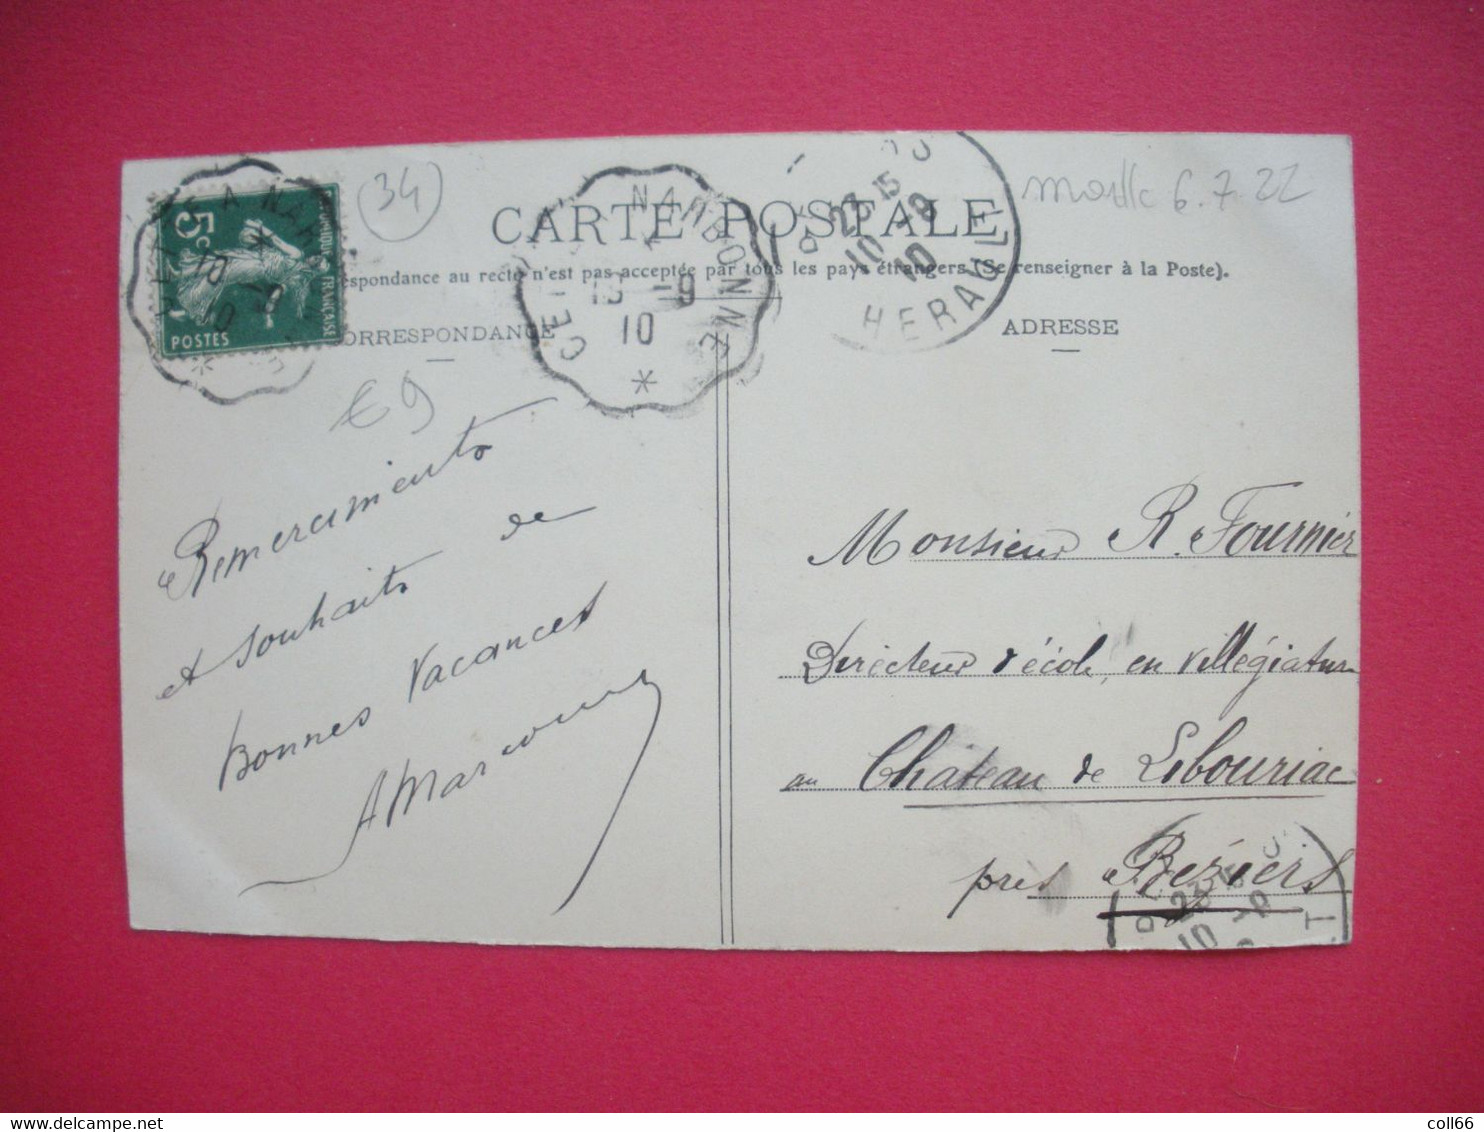 CARTE POSTALE
espondance au recto n'est pas acceptée par tous les pays étrangers (Se renseigner à la Poste).
ORRESPONDANCE
ADRESSE
34
€ 9
6.7.22
5c
POSTES
FRANÇAISE
A NAR
NARBONNE
10
27 15
10 -9
10
HERAULT
Remerciments
et souhaits de
Bonnes Vacances
A Marcouny
Monsieur R. Fournier
Directeur d'école, en villégiature
au Château de Libouriac
près Béziers
23
10
coll66